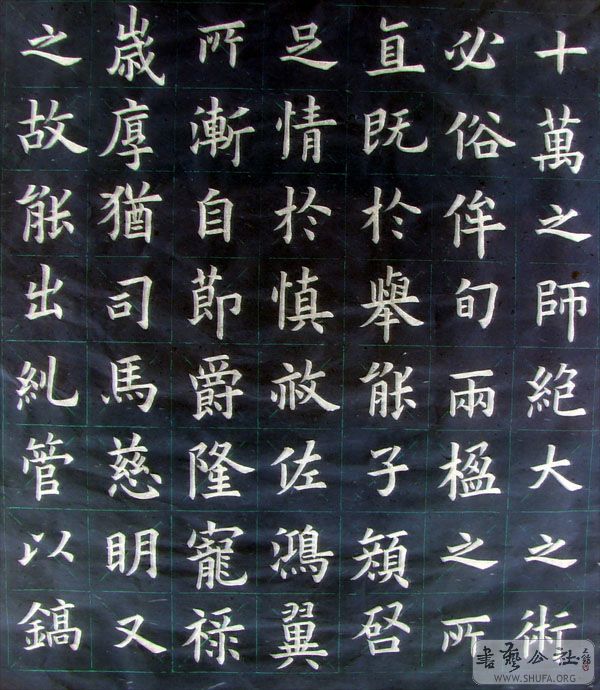 十萬之師絕大之術
必俗侔旬兩楹之所
直既於舉能子啓
足情於慎赦佐鴻翼
所漸自節爵隆寵祿
歲厚猶司馬慈明又
之故能出糺管以鎬
書藝公社
WWW.SHUFA.ORG